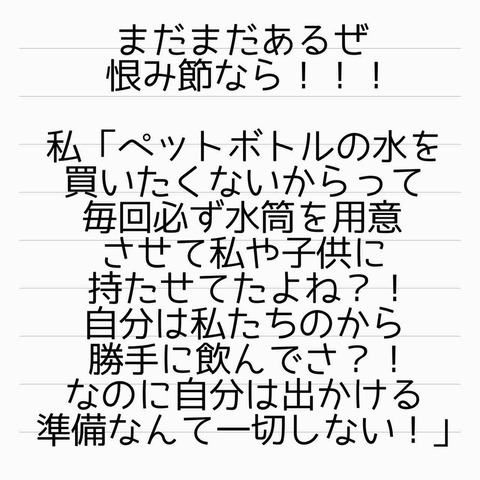 まだまだあるぜ
恨み節なら！！！
私「ペットボトルの水を
買いたくないからって
毎回必ず水筒を用意
させて私や子供に
持たせてたよね？！
自分は私たちのから
勝手に飲んでさ？！
なのに自分は出かける
準備なんて一切しない！」